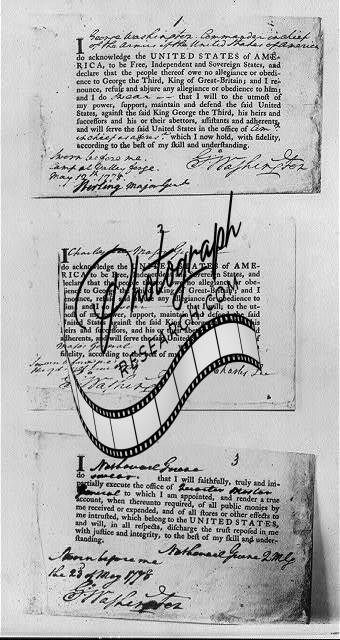 1.
I George Washington Commander in chief
of the Armies of the United States of America
do acknowledge the UNITED STATES of AME-
RICA, to be Free, Independent and Sovereign States, and
declare that the people thereof owe no allegiance or obedi-
ence to George the Third, King of Great-Britain; and I re-
nounce, refuse and abjure any allegiance or obedience to him;
and I do swear that I will to the utmost of
my power, support, maintain and defend the said United
States, against the said King George the Third, his heirs and
successors and his or their abettors, assistants and adherents,
and will serve the said United States in the office of Com-
which I now hold, with fidelity,
according to the best of my skill and understanding.
Sworn before me
Camp at Valley Forge
May 12th 1778
Stirling Major Genl
G. Washington
2
I Charles Lee Major
do acknowledge the UNITED STATES of AME-
RICA to be Free, Independent and Sovereign States, and
declare that the people thereof owe no allegiance or obe-
dience to George Great-Britain; and I
renounce, refuse any allegiance or obedience to
to the utmost
of my power, support, maintain and defend the said
United States against the said King George
heirs and successors, and his or their
adherents, and will serve the said United
Major General
fidelity, according to the
Charles Lee
G. Washington
Photograph
RESEARCH.COM
3
I Nathanael Greene
do swear that I will faithfully, truly and im-
partially execute the office of Quarter Master
General to which I am appointed, and render a true
account, when thereunto required, of all public monies by
me received or expended, and of all stores or other effects to
me intrusted, which belong to the UNITED STATES,
and will, in all respects, discharge the trust reposed in me
with justice and integrity, to the best of my skill and under-
standing.
Sworn before me
Nathanael Greene Q.M.G
the 23 of May 1778
G. Washington